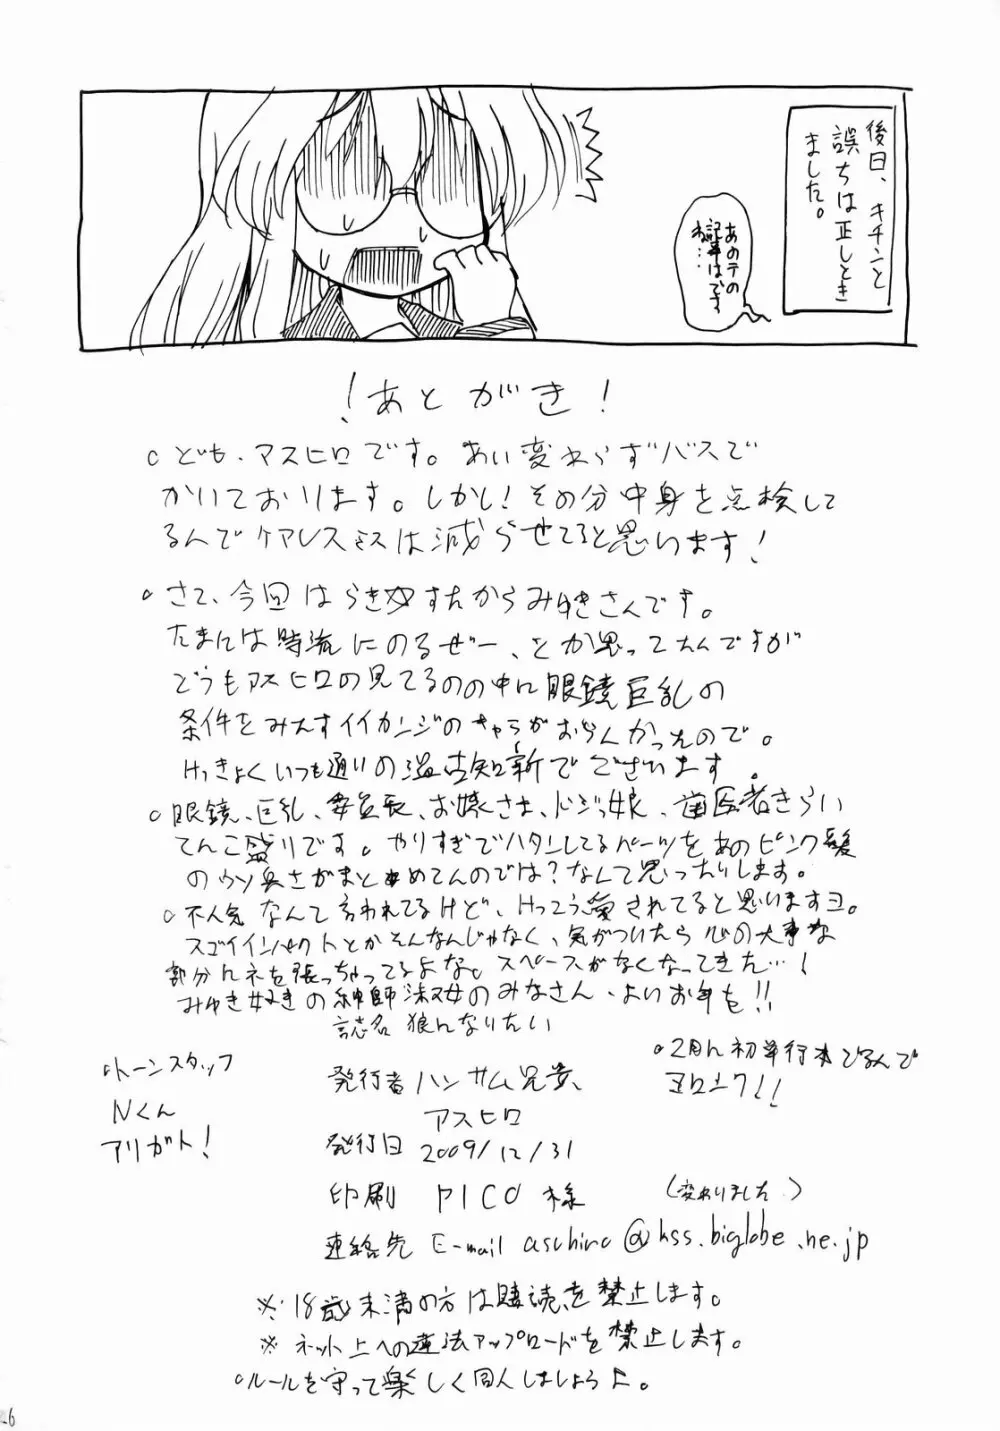 後日、キチンと
誤ちは正しとき
ました。
あのテの
記事はですね…
！あとがき！
○ども、アスヒロです。あい変わらずバスで
かいております。しかし！その分中身を点検して
るんでケアレスミスは減らせてると思います！
○さて、今回はらき☆すたからみゆきさんです。
たまには時流にのるぜー、とか思ってたんですが
どうもアスヒロの見てるのの中に眼鏡巨乳の
条件をみたすイイカンジのキャラがおらんかったので。
けっきょくいつも通りの温古知新でございます。
○眼鏡、巨乳、委員長、お嬢さま、ドジッ娘、歯医者きらい
てんこ盛りです。やりすぎでハタンしてるパーツをあのピンク髪
のウソ臭さがまとめてんのでは？なんて思ったりします。
○不人気なんて言われてるけど、けっこう愛されてると思いますヨ。
スゴイインパクトとかそんなんじゃなく、気がついたら心の大事な
部分にネを張っちゃってるよな。スペースがなくなってきた…！
みゆき好きの紳師淑女のみなさん、よいお年を！！
誌名 狼になりたい
○トーンスタッフ
Nくん
アリガト！
発行者 ハンサム兄貴、
アスヒロ
発行日 2009/12/31
印刷 PICO 様
連絡先 E-mail asuhiro@kss.biglobe.ne.jp
○2月に初単行本でるんで
ヨロシク！！
（変わりました）
※18歳未満の方は購読を禁止します。
※ネット上への違法アップロードを禁止します。
○ルールを守って楽しく同人しましょうよ。
6